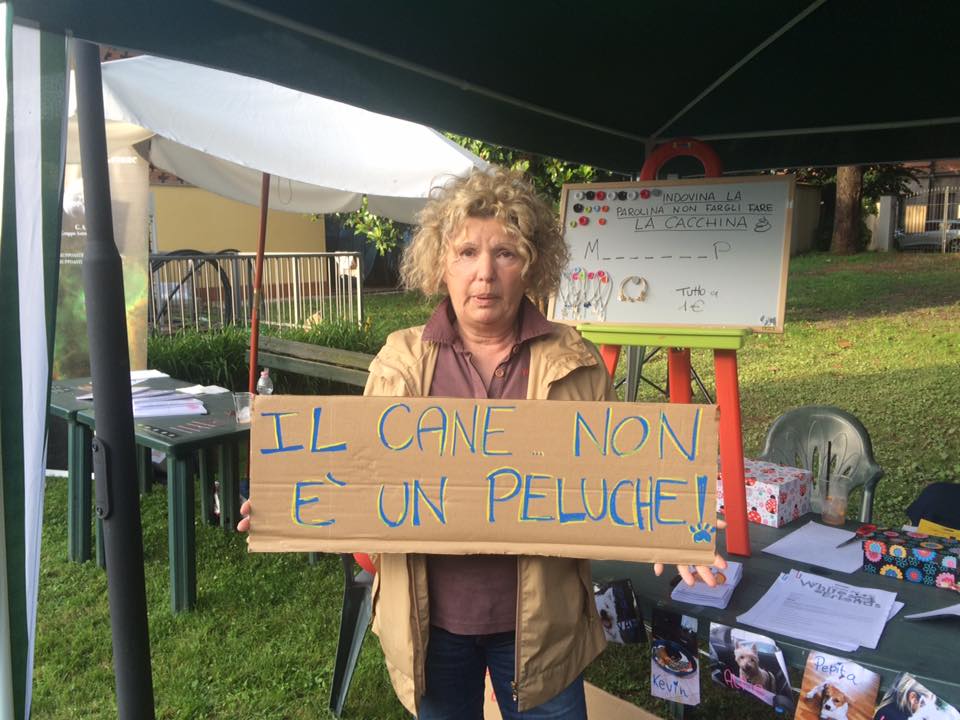 INDOVINA LA
PAROLINA NON FARGLI FARE
LA CACCHINA
M_______P
TUTTO a
1€
IL CANE... NON
È UN PELUCHE!
Kevin
Pepita